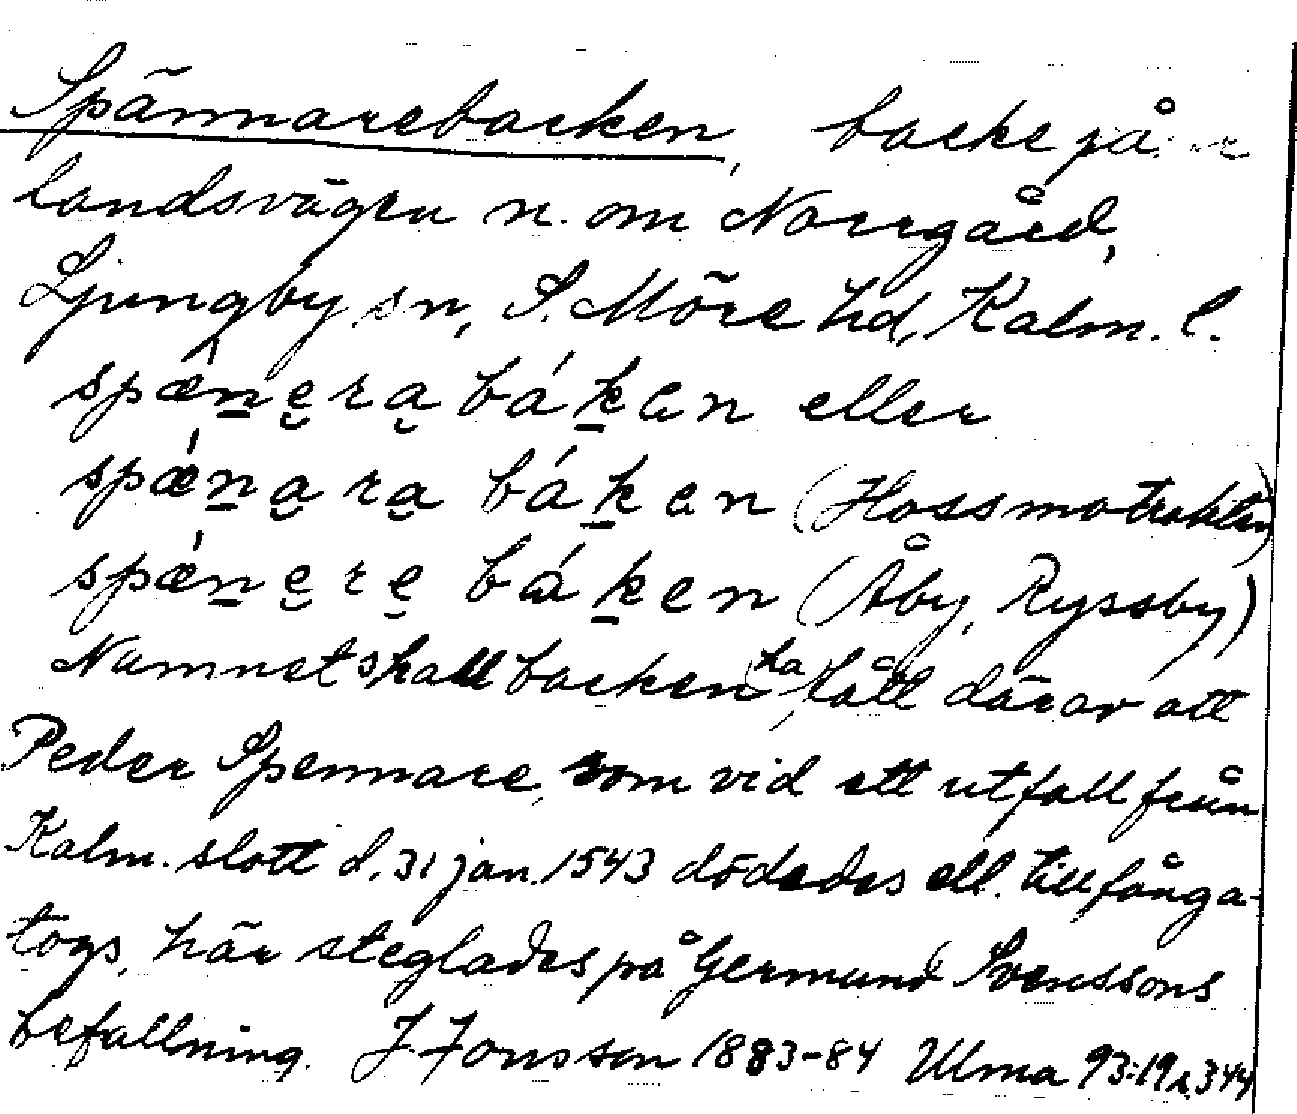 Spännarebacken, backe på
landsvägen n. om Norrgård,
Ljungby sn, S. Möre hd, Kalm. l.
spǽn̲e̮ra̮ bák̲en eller
spǽn̲a̮ra̮ bák̲en (Hossmotrakten)
spǽn̲e̮re̮ bák̲en (Åby, Ryssby)
Namnet skall backen ha fått därav att
Peder Spennare, som vid ett utfall från
Kalm. slott d. 31 jan. 1543 dödades ell. tillfånga-
togs, här steglades på Germund Svenssons
befallning. J. Jonsson 1883-84 Ulma 93:19 s. 344